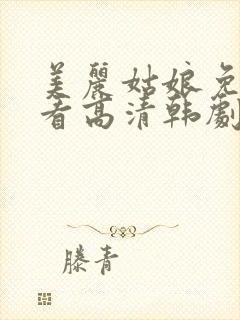 美麗姑娘免
看高清韩劇
滕青